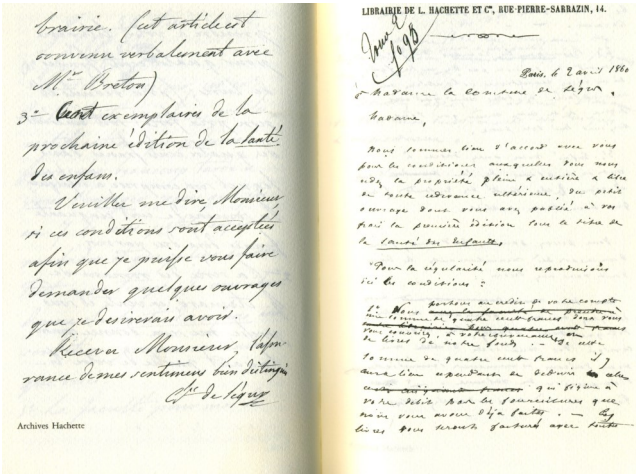 brairie. (cet article est
convenu verbalement avec
Mr Breton)
3o Cent exemplaires de la
prochaine édition de la santé
des enfans.
Veuillez me dire, Monsieur,
si ces conditions sont acceptées
afin que je puisse vous faire
demander quelques ouvrages
que je desirerais avoir.
Recevez Monsieur, l'assu-
rance de mes sentimens bien distingués
Ctesse de Ségur
Archives Hachette
LIBRAIRIE DE L. HACHETTE ET Cie, RUE-PIERRE-SARRAZIN, 14.
Paris, le 2 avril 1860
Madame la comtesse de Ségur,
Madame,
Nous sommes bien d'accord avec vous
pour les conditions auxquelles vous nous
cédez la propriété pleine & entière & libre
de toute redevance ultérieure, du petit
ouvrage dont vous avez publié à vos
frais la première édition sous le titre de
la Santé des Enfants,
Pour la régularité nous reproduisons
ici les conditions :
1o Nous portons au crédit de votre compte
une somme de quatre cents francs dont vous
de livres de notre fonds. - De cette
somme de quatre cents francs il y
aura lieu cependant de déduire celle
qui figure à
votre débit par les fournitures que
nous vous avons déjà faites. - Les
livres vous seront facturés avec toute